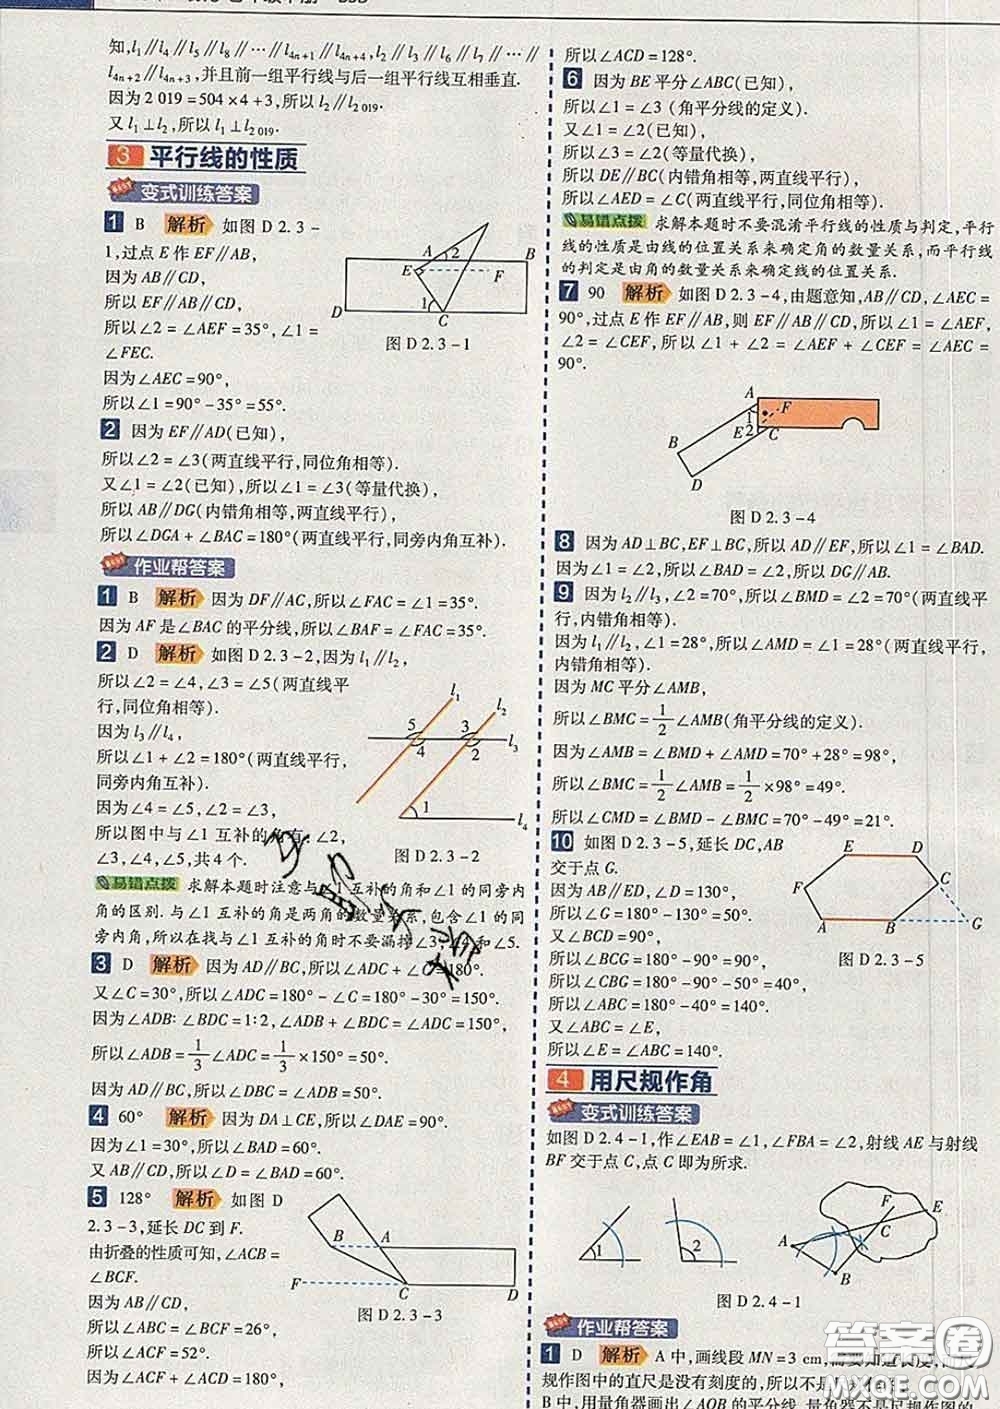 知,l₁∥l₄∥l₅∥l₈∥…∥l₄ₙ₊₁∥l₄ₙ₊₄,l₂∥l₃∥l₆∥l₇∥…∥
l₄ₙ₊₂∥l₄ₙ₊₃,并且前一组平行线与后一组平行线互相垂直.
因为2 019=504×4+3,所以l₂∥l₂ ₀₁₉.
又l₁⊥l₂,所以l₁⊥l₂ ₀₁₉.
3 平行线的性质
变式训练答案
1 B 解析 如图D 2.3-
1,过点E作EF∥AB,
因为AB∥CD,
所以EF∥AB∥CD,
所以∠2=∠AEF=35°,∠1=
∠FEC.
因为∠AEC=90°,
所以∠1=90°-35°=55°.
A 2 B
E F
D 1 C
图D 2.3-1
2 因为EF∥AD(已知),
所以∠2=∠3(两直线平行,同位角相等).
又∠1=∠2(已知),所以∠1=∠3(等量代换),
所以AB∥DG(内错角相等,两直线平行),
所以∠DGA+∠BAC=180°(两直线平行,同旁内角互补).
作业帮答案
1 B 解析 因为DF∥AC,所以∠FAC=∠1=35°.
因为AF是∠BAC的平分线,所以∠BAF=∠FAC=35°.
2 D 解析 如图D 2.3-2,因为l₁∥l₂,
所以∠2=∠4,∠3=∠5(两直线平
行,同位角相等).
因为l₃∥l₄,
所以∠1+∠2=180°(两直线平行,
同旁内角互补).
因为∠4=∠5,∠2=∠3,
所以图中与∠1互补的角有:∠2,
∠3,∠4,∠5,共4个.
l₁ l₂
5 3 l₃
4 2
1 l₄
图D 2.3-2
易错点拨 求解本题时注意与∠1互补的角和∠1的同旁内
角的区别.与∠1互补的角是两角的数量关系,包含∠1的同
旁内角,所以在找与∠1互补的角时不要漏掉∠3,∠4和∠5.
3 D 解析 因为AD∥BC,所以∠ADC+∠C=180°.
又∠C=30°,所以∠ADC=180°-∠C=180°-30°=150°.
因为∠ADB:∠BDC=1:2,∠ADB+∠BDC=∠ADC=150°,
所以∠ADB=1/3∠ADC=1/3×150°=50°.
因为AD∥BC,所以∠DBC=∠ADB=50°.
4 60° 解析 因为DA⊥CE,所以∠DAE=90°.
因为∠1=30°,所以∠BAD=60°.
又AB∥CD,所以∠D=∠BAD=60°.
5 128° 解析 如图D
2.3-3,延长DC到F.
由折叠的性质可知,∠ACB=
∠BCF.
因为AB∥CD,
所以∠ABC=∠BCF=26°,
所以∠ACF=52°.
因为∠ACF+∠ACD=180°,
B A
F C D
图D 2.3-3
所以∠ACD=128°.
6 因为BE平分∠ABC(已知),
所以∠1=∠3(角平分线的定义).
又∠1=∠2(已知),
所以∠2=∠3(等量代换),
所以DE∥BC(内错角相等,两直线平行),
所以∠AED=∠C(两直线平行,同位角相等).
易错点拨 求解本题时不要混淆平行线的性质与判定,平行
线的性质是由线的位置关系来确定角的数量关系,而平行线
的判定是由角的数量关系来确定线的位置关系.
7 90 解析 如图D 2.3-4,由题意知,AB∥CD,∠AEC=
90°,过点E作EF∥AB,则EF∥AB∥CD,所以∠1=∠AEF,
∠2=∠CEF,所以∠1+∠2=∠AEF+∠CEF=∠AEC=
90°.
A F
1
E 2 C
B
D
图D 2.3-4
8 因为AD⊥BC,EF⊥BC,所以AD∥EF,所以∠1=∠BAD.
因为∠1=∠2,所以∠2=∠BAD,所以DG∥AB.
9 因为l₂∥l₃,∠2=70°,所以∠BMD=∠2=70°(两直线平
行,内错角相等).
因为l₁∥l₂,∠1=28°,所以∠AMD=∠1=28°(两直线平行,
内错角相等).
因为MC平分∠AMB,
所以∠BMC=1/2∠AMB(角平分线的定义).
因为∠AMB=∠BMD+∠AMD=70°+28°=98°,
所以∠BMC=1/2∠AMB=1/2×98°=49°,
所以∠CMD=∠BMD-∠BMC=70°-49°=21°.
10 如图D 2.3-5,延长DC,AB
交于点G.
因为ED∥AB,∠D=130°,
所以∠G=180°-130°=50°.
又∠BCD=90°,
所以∠BCG=180°-90°=90°,
所以∠CBG=180°-90°-50°=40°,
所以∠ABC=180°-40°=140°.
又∠ABC=∠E,
所以∠E=∠ABC=140°.
E D
F C
A B G
图D 2.3-5
4 用尺规作角
变式训练答案
如图D 2.4-1,作∠EAB=∠1,∠FBA=∠2,射线AE与射线
BF交于点C,点C即为所求.
1 2 A B C E F
图D 2.4-1
作业帮答案
1 D 解析 A中,画线段MN=3 cm,需要知道长度,
规作图中的直尺是没有刻度的,所以不是
B中,用量角器画出∠AOB的平分线,量角器不是尺规作图的
答案圈